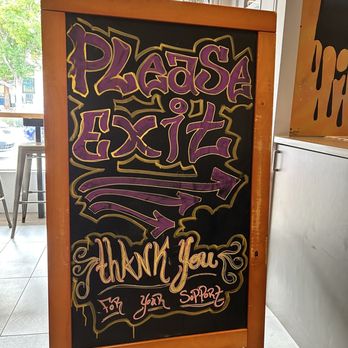 PLeaSe
Exit
thANK You
FOR YOUR SUPPORT